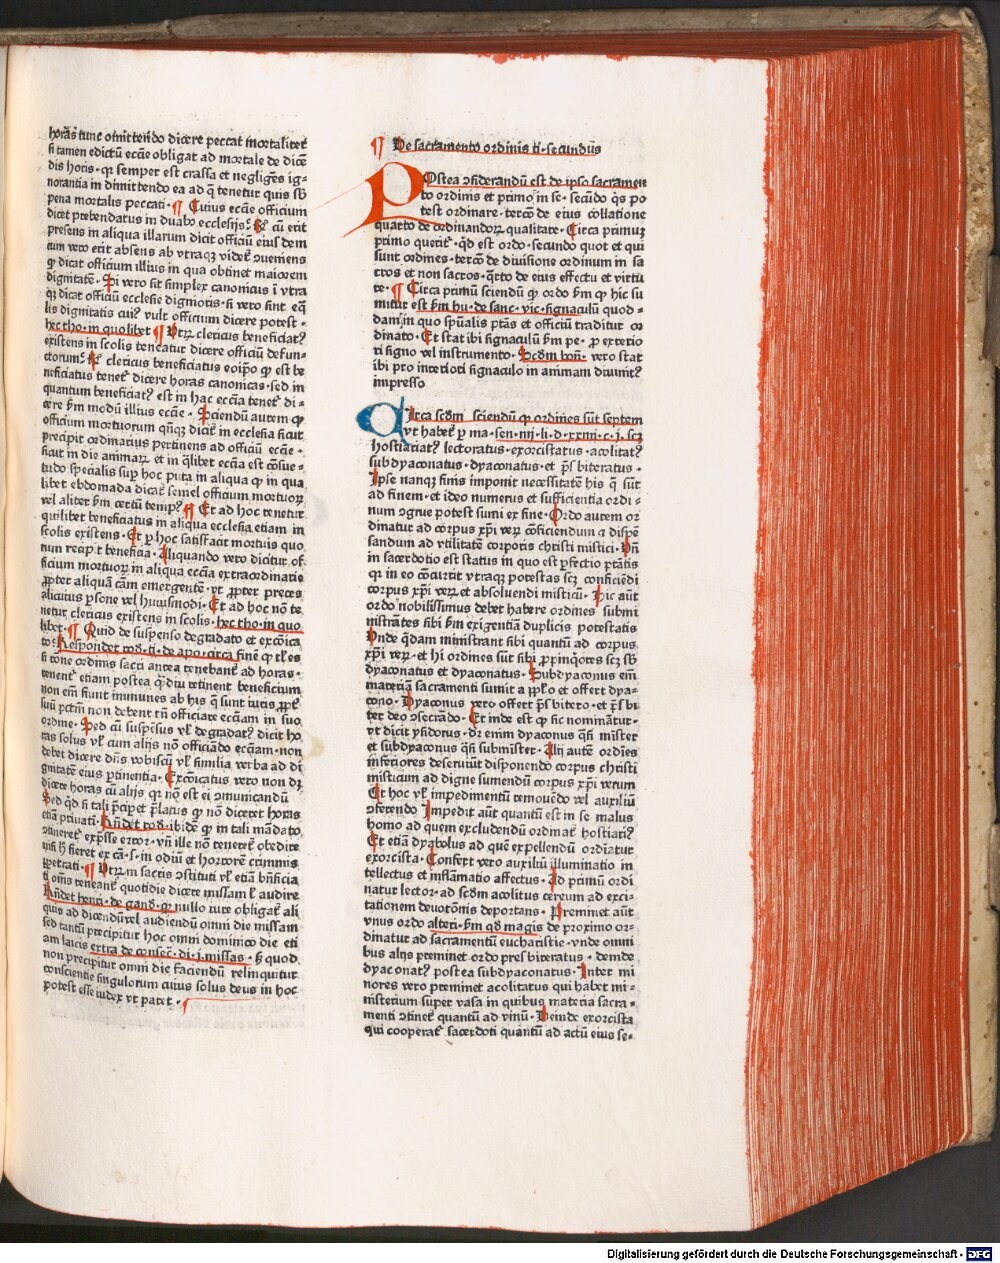 horas tunc omittendo dicere peccat mortaliter
si tamen edictū eccīe obligat ad mortale de dicē
dis horis · qr semper est crassa et negligēs ig-
norantia in dimittendo ea ad q̄ tenetur quis sb̄
pena mortalis peccati · ¶ Cuius eccīe officium
dicet prebendatus in duabꝰ ecclesijs · R̄ cū erit
presens in aliqua illarum dicit officiū eius dem
cum vero erit absens ab vtraqꝫ videt̄ ↄueniens
ꝙ dicat officium illius in qua obtinet maiorem
dignitatē · Si vero sit simplex canonicus ī vtra
qꝫ dicat officiū ecclesie dignioris · si vero sint eq̄
lis dignitatis cuiꝰ vult officium dicere potest ·
hec tho · in quolibet ¶ Vtrꝝ clericus beneficiatꝰ
existens in scolis teneatur dicere officiū defun-
ctorum · R̄ clericus beneficiatus eoipō ꝙ est be
neficiatus tenet̄ dicere horas canonicas · sed in
quantum beneficiatꝰ est in hac eccīa tenet̄ di-
cere ẜm modū illius eccīe · Sciendū autem ꝙ
officium mortuorum qn̄qꝫ dicit̄ in ecclesia sicut
precipit ordinarius pertinens ad officiū eccīe ·
sicut in die animaꝝ et in q̄libet eccīa est cōsue-
tudo specialis suꝑ hoc puta in aliqua ꝙ in qua
libet ebdomada dicat̄ semel officium mortuoꝝ
vel aliter ẜm certū tempꝰ ¶ Et ad hoc tenetur
quilibet beneficiatus in aliqua ecclesia etiam in
scolis existens · Et ꝑ hoc satisfacit mortuis quo
rum recipit beneficia · Aliquando vero dicitur of
ficium mortuoꝝ in aliqua eccīa extraordinarie
ꝓpter aliquā cām emergentē · vt ꝓpter preces
alicuius ꝑsone vel huiusmodi · Et ad hoc nō te
netur clericus existens in scolis · hec tho · in quo
libet · ¶ Quid de suspenso degradato et excōica
to · Respondet rod · ti · de apo · circa finē ꝙ tl̄es
si rōne ordinis sacri antea tenebant̄ ad horas ·
tenent̄ etiam postea q̄diu retinent beneficium
non em̄ fiunt immunes ab his q̄ sunt iuris ꝓpt̄
suū pctm̄ non debent tn̄ officiare eccīam in suo
ordine · Sed cū suspēsus vl̄ degradatꝰ dicit ho
ras solus vl̄ cum alijs nō officiādo eccīam · non
debet dicere dn̄s vobiscū vl̄ similia verba ad di
gnitatē eius ꝑtinentia · Excōicatus vero non dꝫ
dicere horas cū alijs qr nō est ei ↄmunicandū
Sed qd̄ si tali p̄cipet p̄latus ꝙ nō diceret horas
etiā priuati · Rn̄det rod · ibidē ꝙ in tali mādato
ↄtineret̄ exp̄sse error · vn̄ ille nō teneret̄ obedire
nisi h̄ fieret ex cā · s · in odiū et horrorē criminis
ꝑpetrati · ¶ Vtrꝝ in sacris ↄstituti vl̄ etiā bn̄ficia
ti om̄s teneant̄ quotidie dicere missam l̄ audire
Rn̄det henri · de gand · qr nullo iure obligat̄ ali
quis ad dicendū vel audiendū omni die missam
sed tantū precipitur hoc omni dominico die eti
am laicis extra de consec̄ · di · j · missas · ẜ quod
non precipitur omni die faciendū relinquitur
conscientie singulorum cuius solus deus in hoc
potest esse iudex vt patet · ¶
¶ De sacramento ordinis ti · secundꝰ
POstea ↄsiderandū est de ipso sacramen
to ordinis et primo in se · secūdo qs po
test ordinare · tercō de eius collatione
quarto de ordinandoꝝ qualitate · Circa primum
primo querit̄ · qd̄ est ordo · secundo quot et qui
sunt ordines · tercō de diuisione ordinum in sa
cros et non sacros · q̄rto de eius effectu et virtu
te · ¶ Circa primū sciendū ꝙ ordo ẜm ꝙ hic su
mitur est ẜm hu · de sanc · vic · signaculū quod-
dam in quo spūalis ptās et officiū traditur or
dinato · Et stat ibi signaculū ẜm pe · ꝓ exterio
ri signo vel instrumento · Scd̄m bon̄ · vero stat
ibi pro interiori signaculo in animam diuinitꝰ
impresso
CIrca scd̄m sciendū ꝙ ordines sūt septem
vt habet̄ ꝑ ma · sen · iiij · li · d · xxiiij · c · j · scꝫ
hostiariatꝰ lectoratus · exorcistatus · acolitatꝰ
subdyaconatus · dyaconatus · et p̄sbiteratus ·
Ipse nanqꝫ finis imponit necessitatē his q̄ sūt
ad finem · et ideo numerus et sufficientia ordi-
num ↄgrue potest sumi ex fine · Ordo autem or
dinatur ad corpus xp̄i verꝝ cōficiendum ⁊ dispē
sandum ad vtilitatē corporis christi mistici · Vn̄
in sacerdotio est status in quo est ꝑfectio ptātis
qr in eo cōcurrit vtraqꝫ potestas scꝫ conficiēdi
corpus xp̄i verꝝ et absoluendi misticū · Hic aūt
ordo nobilissimus debet habere ordines submi
nistrātes sibi ẜm exigentiā duplicis potestatis
Vnde q̄dam ministrant sibi quantū ad corpus
xp̄i verꝝ · et hi ordines sūt sibi ꝓpinq̄ores scꝫ sb̄
dyaconatus et dyaconatus · Subdyaconus em̄
materiā sacramenti sumit a ppl̄o et offert dya-
cono · Dyaconus vero offert p̄sbitero · et p̄sbi
ter deo ↄsecrādo · Et inde est ꝙ sic nominātur ·
vt dicit ysidorus · dr̄ enim dyaconus qn̄i mister
et subdyaconus qn̄i submister · Alij autē ordīes
inferiores deseruiūt disponendo corpus christi
misticum ad digne sumendū corpus xp̄i verum
Et hoc vl̄ impedimentū remouēdo vel auxiliū
ↄferendo Impedit aūt quantū est in se malus
homo ad quem excludendū ordinat̄ hostiariꝰ
Et etiā dyabolus ad quē expellendū ordīatur
exorcista · Confert vero auxiliū illuminatio in
tellectus et inflamatio affectus · Ad primū ordi
natur lector · ad scd̄m acolitus cereum ad exci-
tationem deuotōnis deportans · Preminet aūt
vnus ordo alteri · ẜm qd̄ magis de proximo or-
dinatur ad sacramentū eucharistie · vnde omni
bus alijs preminet ordo presbiteratus · deinde
dyaconatꝰ postea subdyaconatus · Inter mi
nores vero preminet acolitatus qui habet mi-
nisterium super vasa in quibus materia sacra-
menti ↄtinet̄ quantū ad vinū · Deinde exorcista
qui cooperat̄ sacerdoti quantū ad actū eius se-
Digitalisierung gefördert durch die Deutsche Forschungsgemeinschaft - DFG